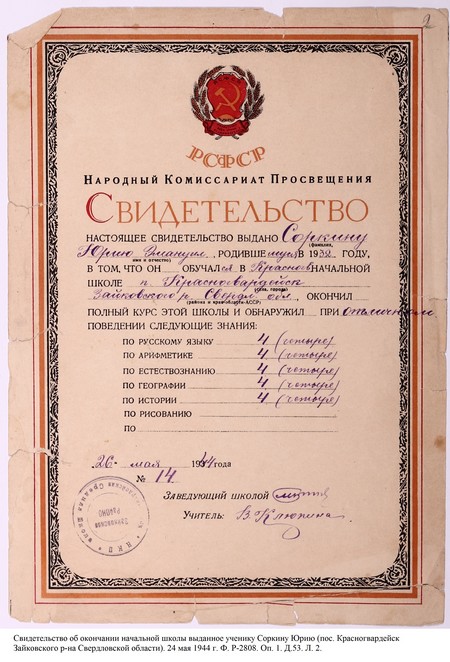 2
РСФСР
НАРОДНЫЙ КОМИССАРИАТ ПРОСВЕЩЕНИЯ
СВИДЕТЕЛЬСТВО
НАСТОЯЩЕЕ СВИДЕТЕЛЬСТВО ВЫДАНО Соркину
(фамилия,
Юрию , РОДИВШЕМУСЯ В 1932 ГОДУ,
имя и отчество)
В ТОМ, ЧТО ОН ОБУЧАЛСЯ В НАЧАЛЬНОЙ
ШКОЛЕ п. Красногвардейск
(села, города)
Зайковского р. Свердл. обл., ОКОНЧИЛ
(района и края-области-АССР)
ПОЛНЫЙ КУРС ЭТОЙ ШКОЛЫ И ОБНАРУЖИЛ ПРИ отличном
ПОВЕДЕНИИ СЛЕДУЮЩИЕ ЗНАНИЯ:
ПО РУССКОМУ ЯЗЫКУ 4 (четыре)
ПО АРИФМЕТИКЕ 4 (четыре)
ПО ЕСТЕСТВОЗНАНИЮ 4 (четыре)
ПО ГЕОГРАФИИ 4 (четыре)
ПО ИСТОРИИ 4 (четыре)
ПО РИСОВАНИЮ
ПО
26 мая 1944 года
№ 14
ЗАВЕДУЮЩИЙ ШКОЛОЙ
УЧИТЕЛЬ: В. Клюкина
Свидетельство об окончании начальной школы выданное ученику Соркину Юрию (пос. Красногвардейск
Зайковского р-на Свердловской области). 24 мая 1944 г. Ф. Р-2808. Оп. 1. Д.53. Л. 2.